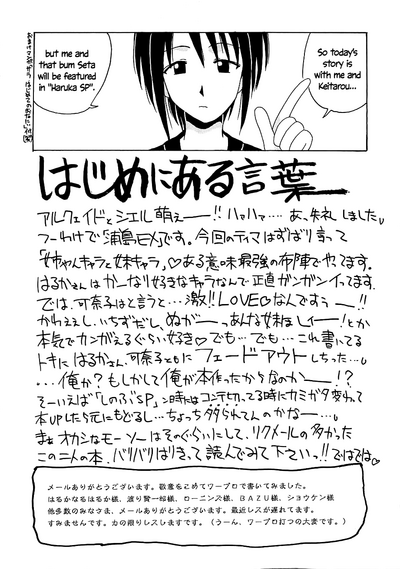 So today's
story is
with me and
Keitarou...
but me and
that bum Seta
will be featured
in "Haruka SP".
はじめにある言葉
アルクェイドとシエル萌えー!!ハァハァ…。あ、失礼しました。
つーわけで「浦島EX」です。今回のテイマはずばり言って
「姉ちゃんキャラと妹キャラ」♡ある意味最強の布陣でやてます。
はるかさんはかーなり好きなキャラなんで正直ガンガンイってます。
では、可奈子はと言うと…激!!LOVE♡なんですぅー!!
かわええし、いちずだし、ぬがーっあんな妹ほしィー!とか
本気でカンがえるぐらい好き♡でも…でも…これ書いてる
トキにはるかさん、可奈子ともにフェードアウトしちった…。
…俺か?もしかして俺が本作ったからなのかー!?
そーいえば「しのぶSP」ン時はコンテ切ってる時にカミガタ変わって
本UPしたら元にもどるし…ちょっち祟られてんのかな…。
まぁオカシなモーソーはそのぐらいにして、リクメールの多かった
この二人の本、バリバリはりきって読んでみて下さいっ!!ではでは♡
メールありがとうございます。敬意をこめてワープロで書いてみました。
はるかなるはるか様、渡り賢一郎様、ローニンズ様、BAZU様、ショウケン様
他多数のみなさま、メールありがとうございます。最近レスが遅れてます。
すみませんです。力の限りレスしますです。(うーん、ワープロ打つの大変です。)